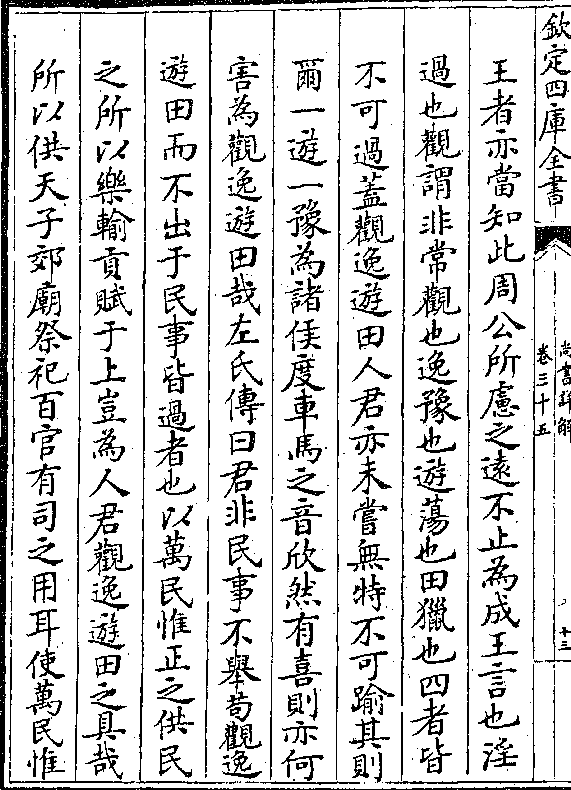 欽定四庫全書
尚書詳解
卷三十五
十三
王者亦當知此周公所慮之遠不止為成王言也淫
過也觀謂非常觀也逸豫也遊蕩也田獵也四者皆
不可過蓋觀逸遊田人君亦未嘗無特不可踰其則
爾一遊一豫為諸侯度車馬之音欣然有喜則亦何
害為觀逸遊田哉左氏傳曰君非民事不舉苟觀逸
遊田而不出于民事皆過者也以萬民惟正之供民
之所以樂輸貢賦于上豈為人君觀逸遊田之具哉
所以供天子郊廟祭祀百官有司之用耳使萬民惟